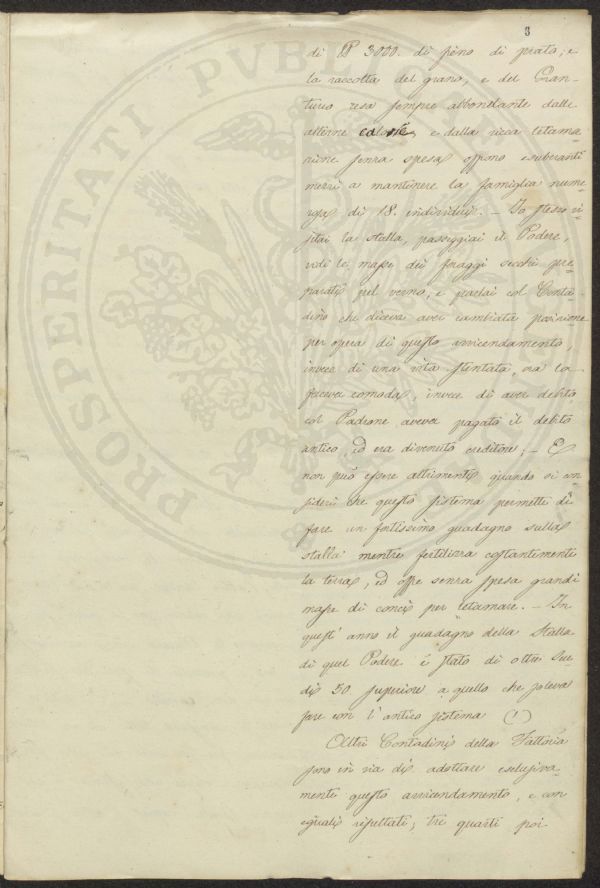 3
di ₶ 3000. di fieno di prato; e
la raccolta del grano, e del Gran-
turco resa sempre abbondante dalle
alterne e dalla ricca letama-
zione senza spesa offrono esuberanti
mezzi a mantenere la famiglia nume-
rosa di 18. individui. — Io stesso vi-
sitai la stalla, passeggiai il Podere,
vidi le masse dei foraggi secchi pre-
parati pel verno, e parlai col Conta-
dino che diceva aver cambiata posizione
per opera di questo avvicendamento,
invece di una vita stentata, ora la
faceva comoda, invece di aver debito
col Padrone aveva pagato il debito
antico, ed era divenuto creditore; — E
non può essere altrimenti quando si con-
sideri che questo sistema permette di
fare un fortissimo guadagno sulla
stalla mentre fertilizza costantemente
la terra, ed offre senza spesa grandi
masse di concio per letamare. — In
quest' anno il guadagno della Stalla
di quel Podere è stato di oltre Scu-
di 50 superiore a quello che soleva
fare con l' antico sistema (1)
Altri Contadini della Fattoria
sono in via di adottare esclusiva-
mente questo avvicendamento, e con
eguali risultati; tre quarti poi
PROSPERITATI PVBLICAE